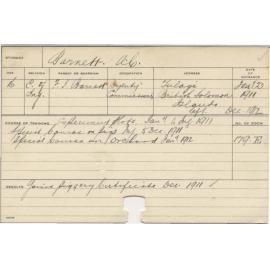 STUDENT
Barnett. A.C.
AGE RELIGION PARENT OR GUARDIAN OCCUPATION ADDRESS DATE OF ENTRANCE
16 C. of Eng. F. J. Barnett Deputy Commissioner Tulagi British Solomon Islands
1911
Left Dec 1912
COURSE OF TRAINING NO. OF ROOM
1911
Special Course on Pigs 5 Dec 1911
Special Course in Orchard Jany 1912 179.E.
RESULTS Gained Piggery Certificate Dec 1911